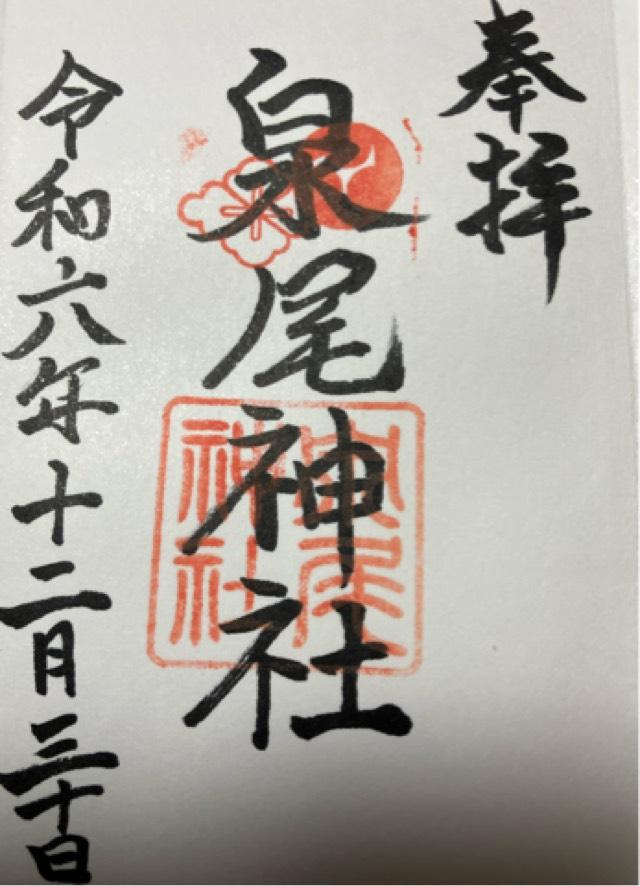 奉拝
泉尾神社
泉尾神社
令和六年十二月三十日